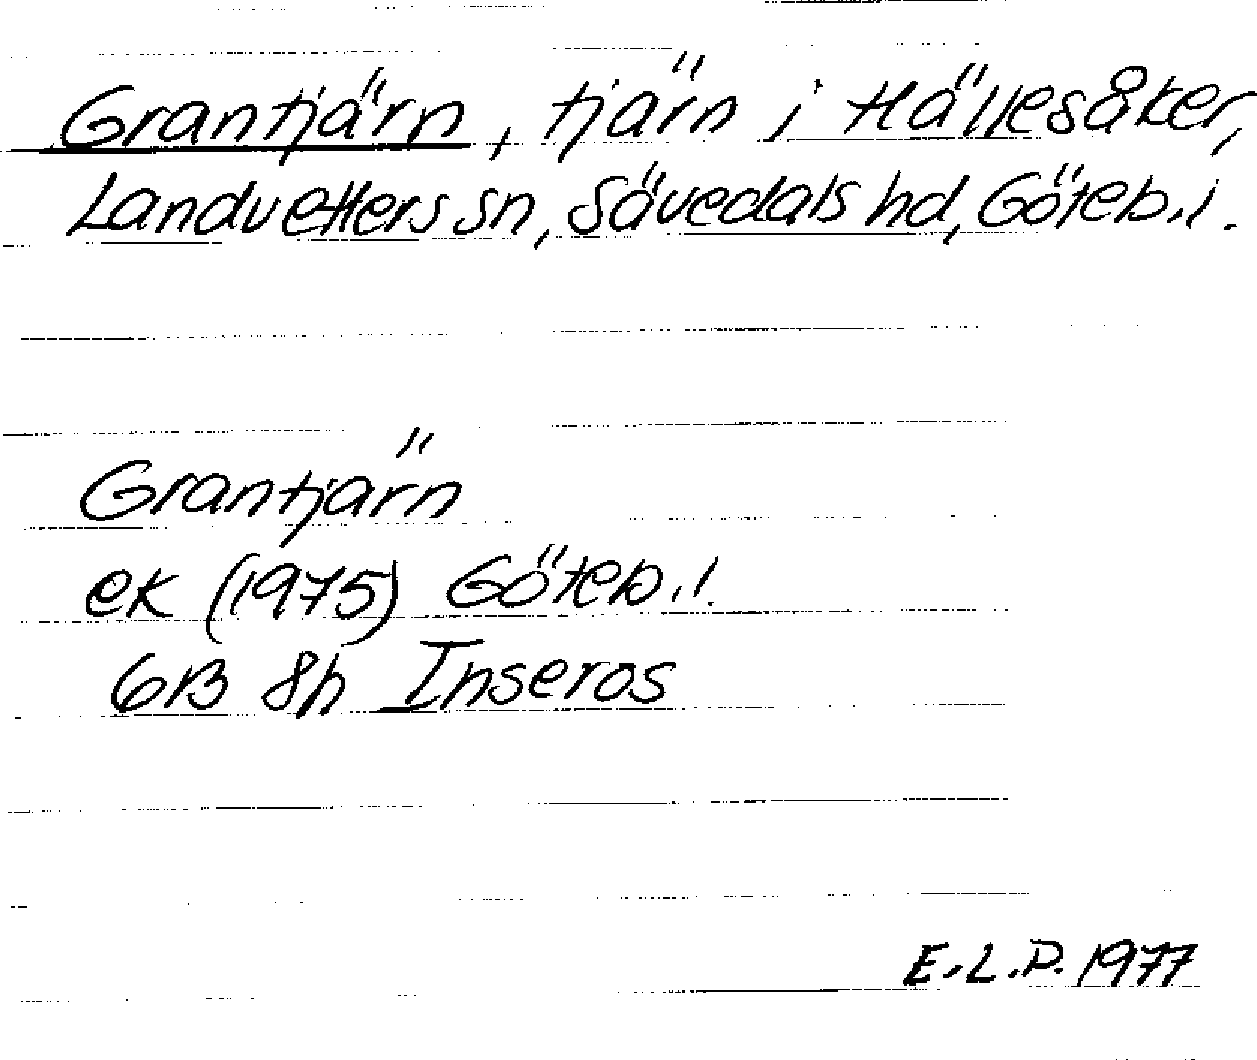 Grantjärn, tjärn i Hällesåker,
Landvetters sn, Sävedals hd, Göteb.l.
Grantjärn
ek (1975) Göteb.l.
6B 8h Inseros
E.L.P. 1977